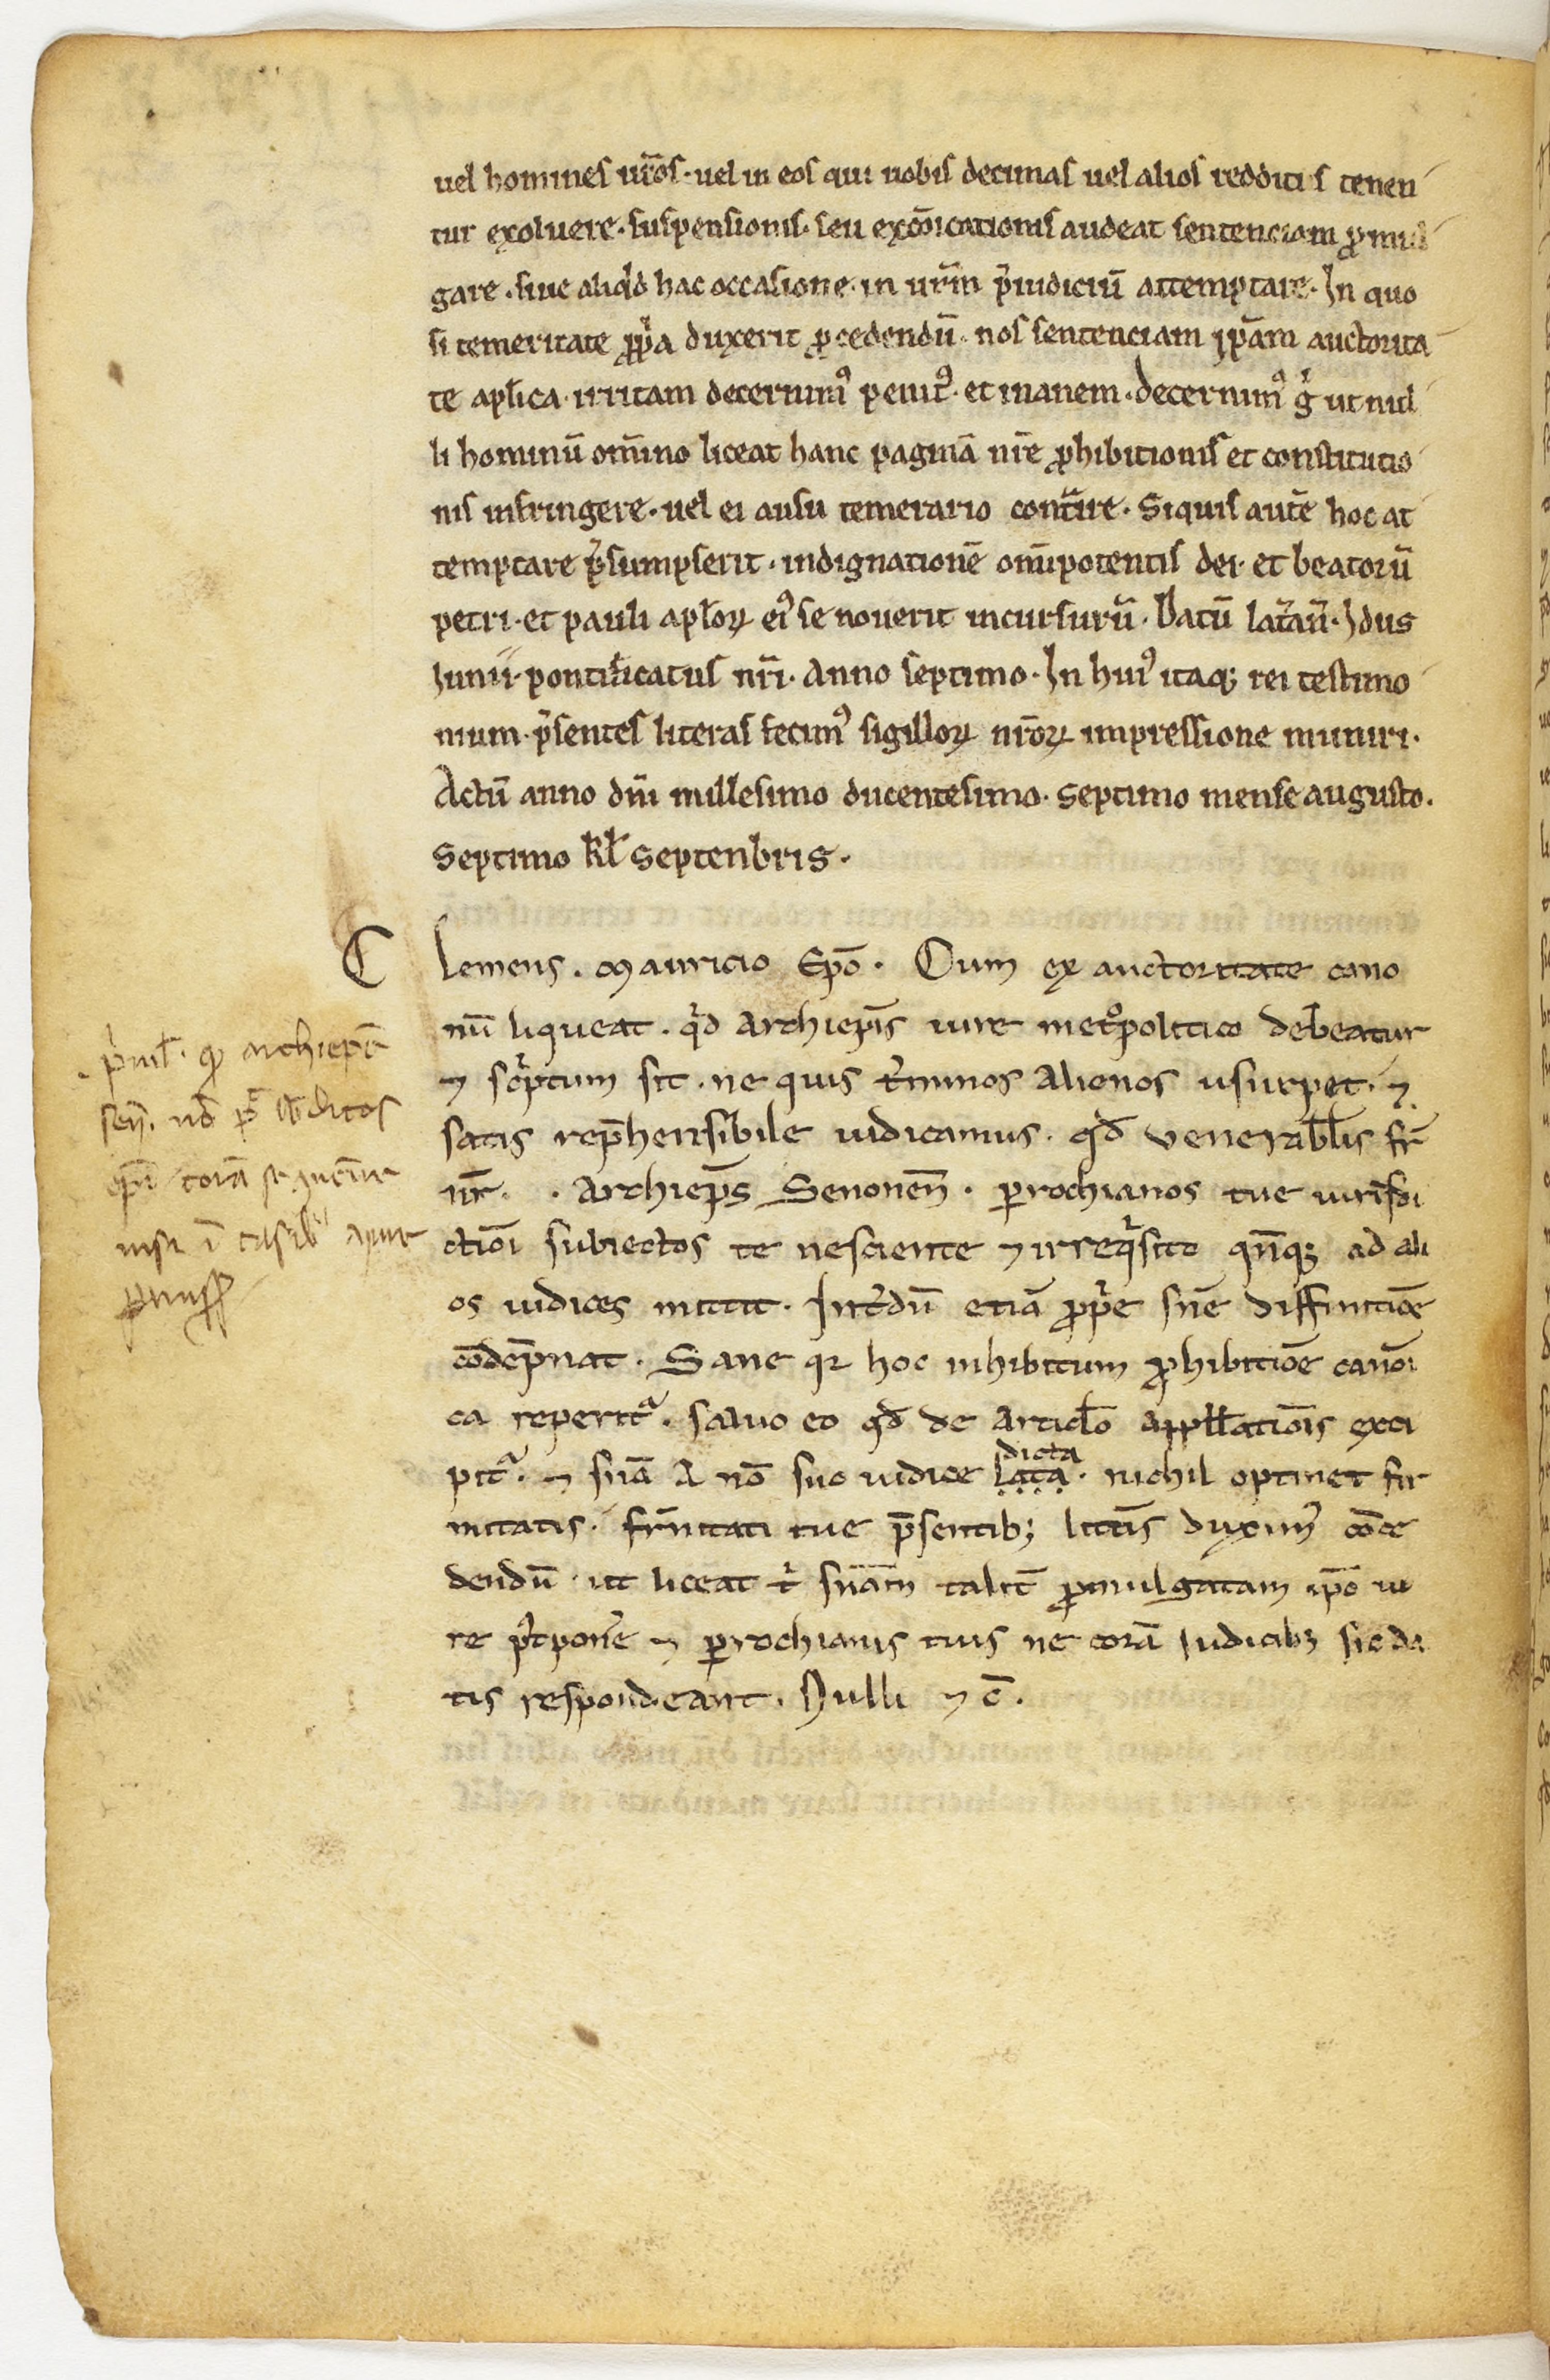 uel homines ur̃os · uel in eos qui uobis decimas uel alios redditus tenen
tur exoluere · suspensionis · seu excōicationis audeat sentenciam ꝓmul
gare · siue aliqͥd hac occasione · in ur̃m p̾iudiciū attemptare · In quo
si temeritate ꝓpͥa duxerit ꝓcedendū · nos sentenciam ip̄am auctorita
te apl̓ica · irritam decernimꝰ penitꝰ · et inanem · decernimꝰ gͥ ut nul
li hominū om̄ino liceat hanc paginā nr̄e ꝓhibitionis et constitutio
nis infringere · uel ei ausu temerario contͣire · Siquis autē hoc at
temptare p̾sumpserit · indignationē om̄ipotentis dei · et beatorū
petri · et pauli apl̓oꝝ eiꝰ se nouerit incursurū · Datū lat̾an̄ · Idus
Iunii · pontificatus nr̄i · Anno septimo · In huiꝰ itaqꝫ rei testimo
nium · p̾sentes literas fecimꝰ sigilloꝝ nr̄oꝝ impressione muniri ·
Actū anno dn̄i millesimo ducentesimo · septimo mense augusto ·
Septimo kl̓ septenbris ·
C lemens · Mauricio Ep̄o · Cum ex auctoritate cano
nū liqueat · qͥd Archiep̄is iure metͦpolitico debeatur
⁊ scͥptum sit · ne quis t̾minos alienos usurpet · ⁊
satis rep̄hensibile iudicamus · qd̄ venerabl̓is fr̄
nr̄ · · Archiep̄s Senonen̄ · ꝑrochianos tue iurisdi
ctiōi subiectos te nesciente ⁊ irreqͥsito qn̄qꝫ ad ali
os iudices mittit · Int̾dū etiā ꝓpͥe sn̄e diffinitiōe
cōdēpnat · Sane qꝛ hoc inhibitum ꝓhibitiōe canōi
ca reperitᷣ · saluo eo qd̄ de Articl̓o appll̓atiōis exci
pitᷣ · ⁊ sn̄ia A nō suo iudice lata dicta · nichil optinet fir
mitatis · fr̄nitati tue p̄sentibꝫ litt̄is duximꝰ cōce
dendū · ut liceat t̾ sn̄iam talit̄ ꝓmulgatam ip̄o iu
re p̾tpon̾e ⁊ ꝑrochianis tuis ne corā iudicibꝫ sic da
tis respondeant · Nulli ⁊ c̄ ·
p̾uil̓ · qd̓ archiep̄s
sen̄ · nō pt̄ s̄bditos
ep̄i corā se
nisi ī casibꝰ a iure